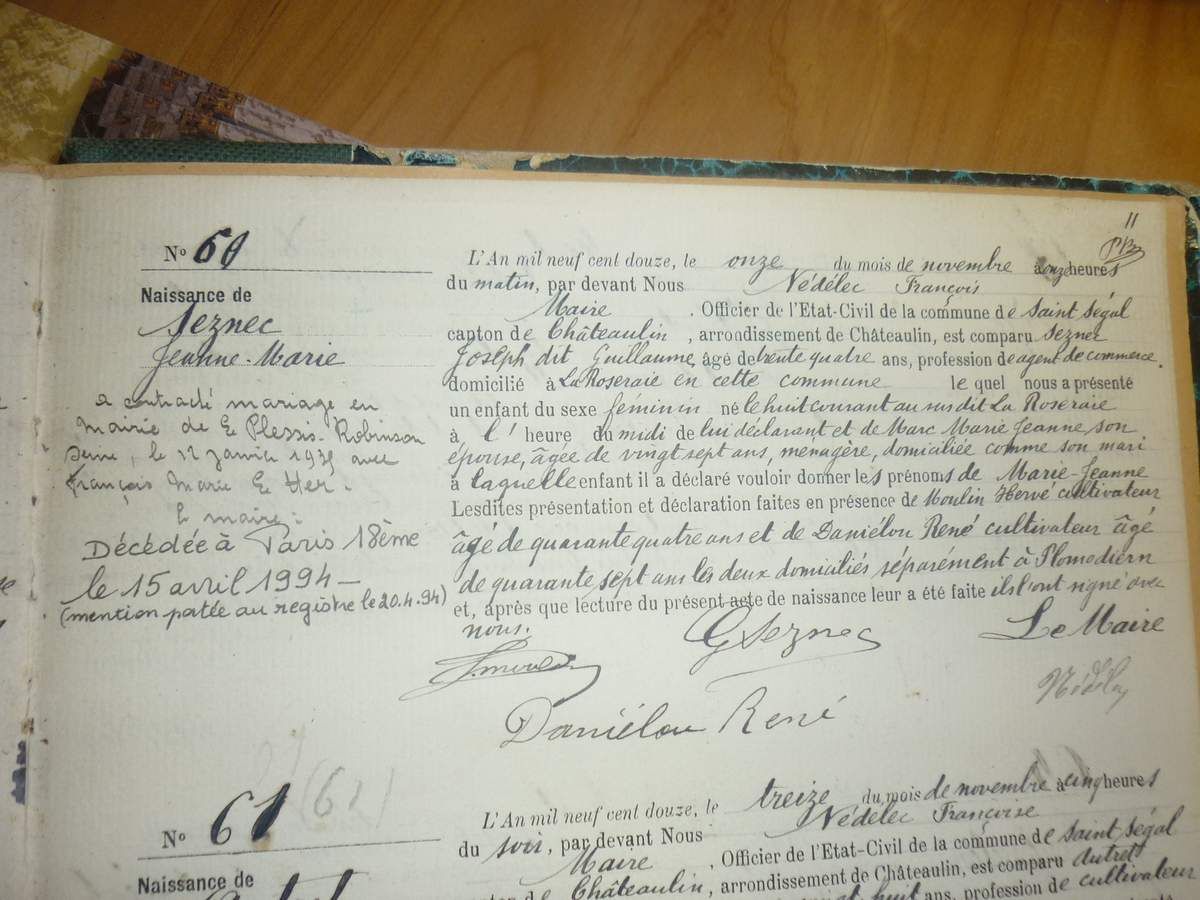 11
N° 60
Naissance de
Seznec
Jeanne-Marie
a contracté mariage en
Mairie de Le Plessis-Robinson
Seine, le 12 janvier 1935 avec
François Marie Le Her.
le maire:
Décédée à Paris 18ème
le 15 avril 1994 —
(mention portée au registre le 20.4.94)
L'An mil neuf cent douze, le onze du mois de novembre à onze heures
du matin, par devant Nous Nédélec François
Maire . Officier de l'Etat-Civil de la commune de Saint Ségal
canton de Châteaulin , arrondissement de Châteaulin, est comparu Seznec
Joseph dit Guillaume, âgé de trente quatre ans, profession de agent de commerce.
domicilié à La Roseraie en cette commune le quel nous a présenté
un enfant du sexe féminin né le huit courant au susdit La Roseraie
à l' heure du midi de lui déclarant et de Marc Marie Jeanne, son
épouse, âgée de vingt sept ans, menagère, domiciliée comme son mari
à laquelle enfant il a déclaré vouloir donner les prénoms de Marie-Jeanne
Lesdites présentation et déclaration faites en présence de Moulin Hervé cultivateur
âgé de quarante quatre ans et de Daniélou René cultivateur âgé
de quarante sept ans les deux domiciliés séparément à Plomodiern
et, après que lecture du présent acte de naissance leur a été faite ils ont signé avec
nous.
G Seznec
Le Maire
Daniélou René
N° 61 (62)
Naissance de
L'An mil neuf cent douze, le treize du mois de novembre à cinq heures
du soir, par devant Nous Nédélec Françoise
Maire , Officier de l'Etat-Civil de la commune de Saint Ségal
canton de Châteaulin, arrondissement de Châteaulin, est comparu
huit ans, profession de cultivateur